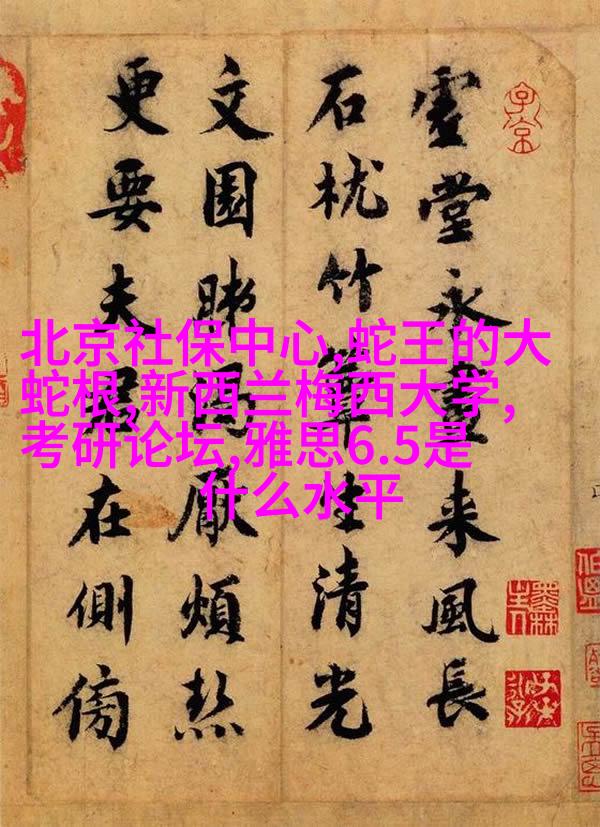 虚堂永晝来風長
石枕竹簟生清光
文園肺厭煩熱
更要夫君在側傍
北京社保中心,蛇王的大
蛇根,新西兰梅西大学,
考研论坛,雅思6.5是
什么水平